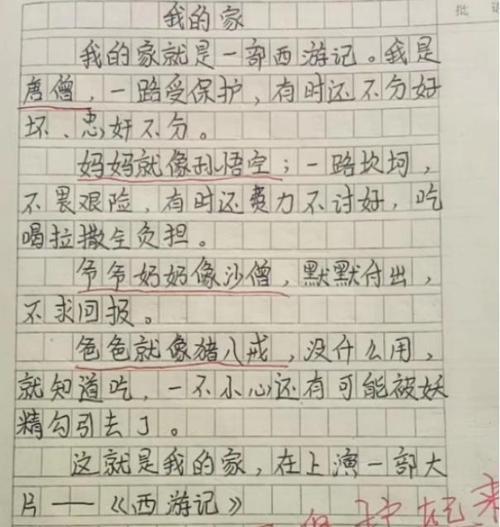 我的家
我的家就是一部西游记。我是
唐僧，一路受保护，有时还不分好
坏、忠奸不分。
妈妈就像孙悟空；一路坎坷，
不畏艰险，有时还费力不讨好，吃
喝拉撒全负担。
爷爷奶奶像沙僧，默默付出，
不求回报。
爸爸就像猪八戒，没什么用，
就知道吃，一不小心还有可能被妖
精勾引去了。
这就是我的家，在上演一部大
片——《西游记》
起来
批